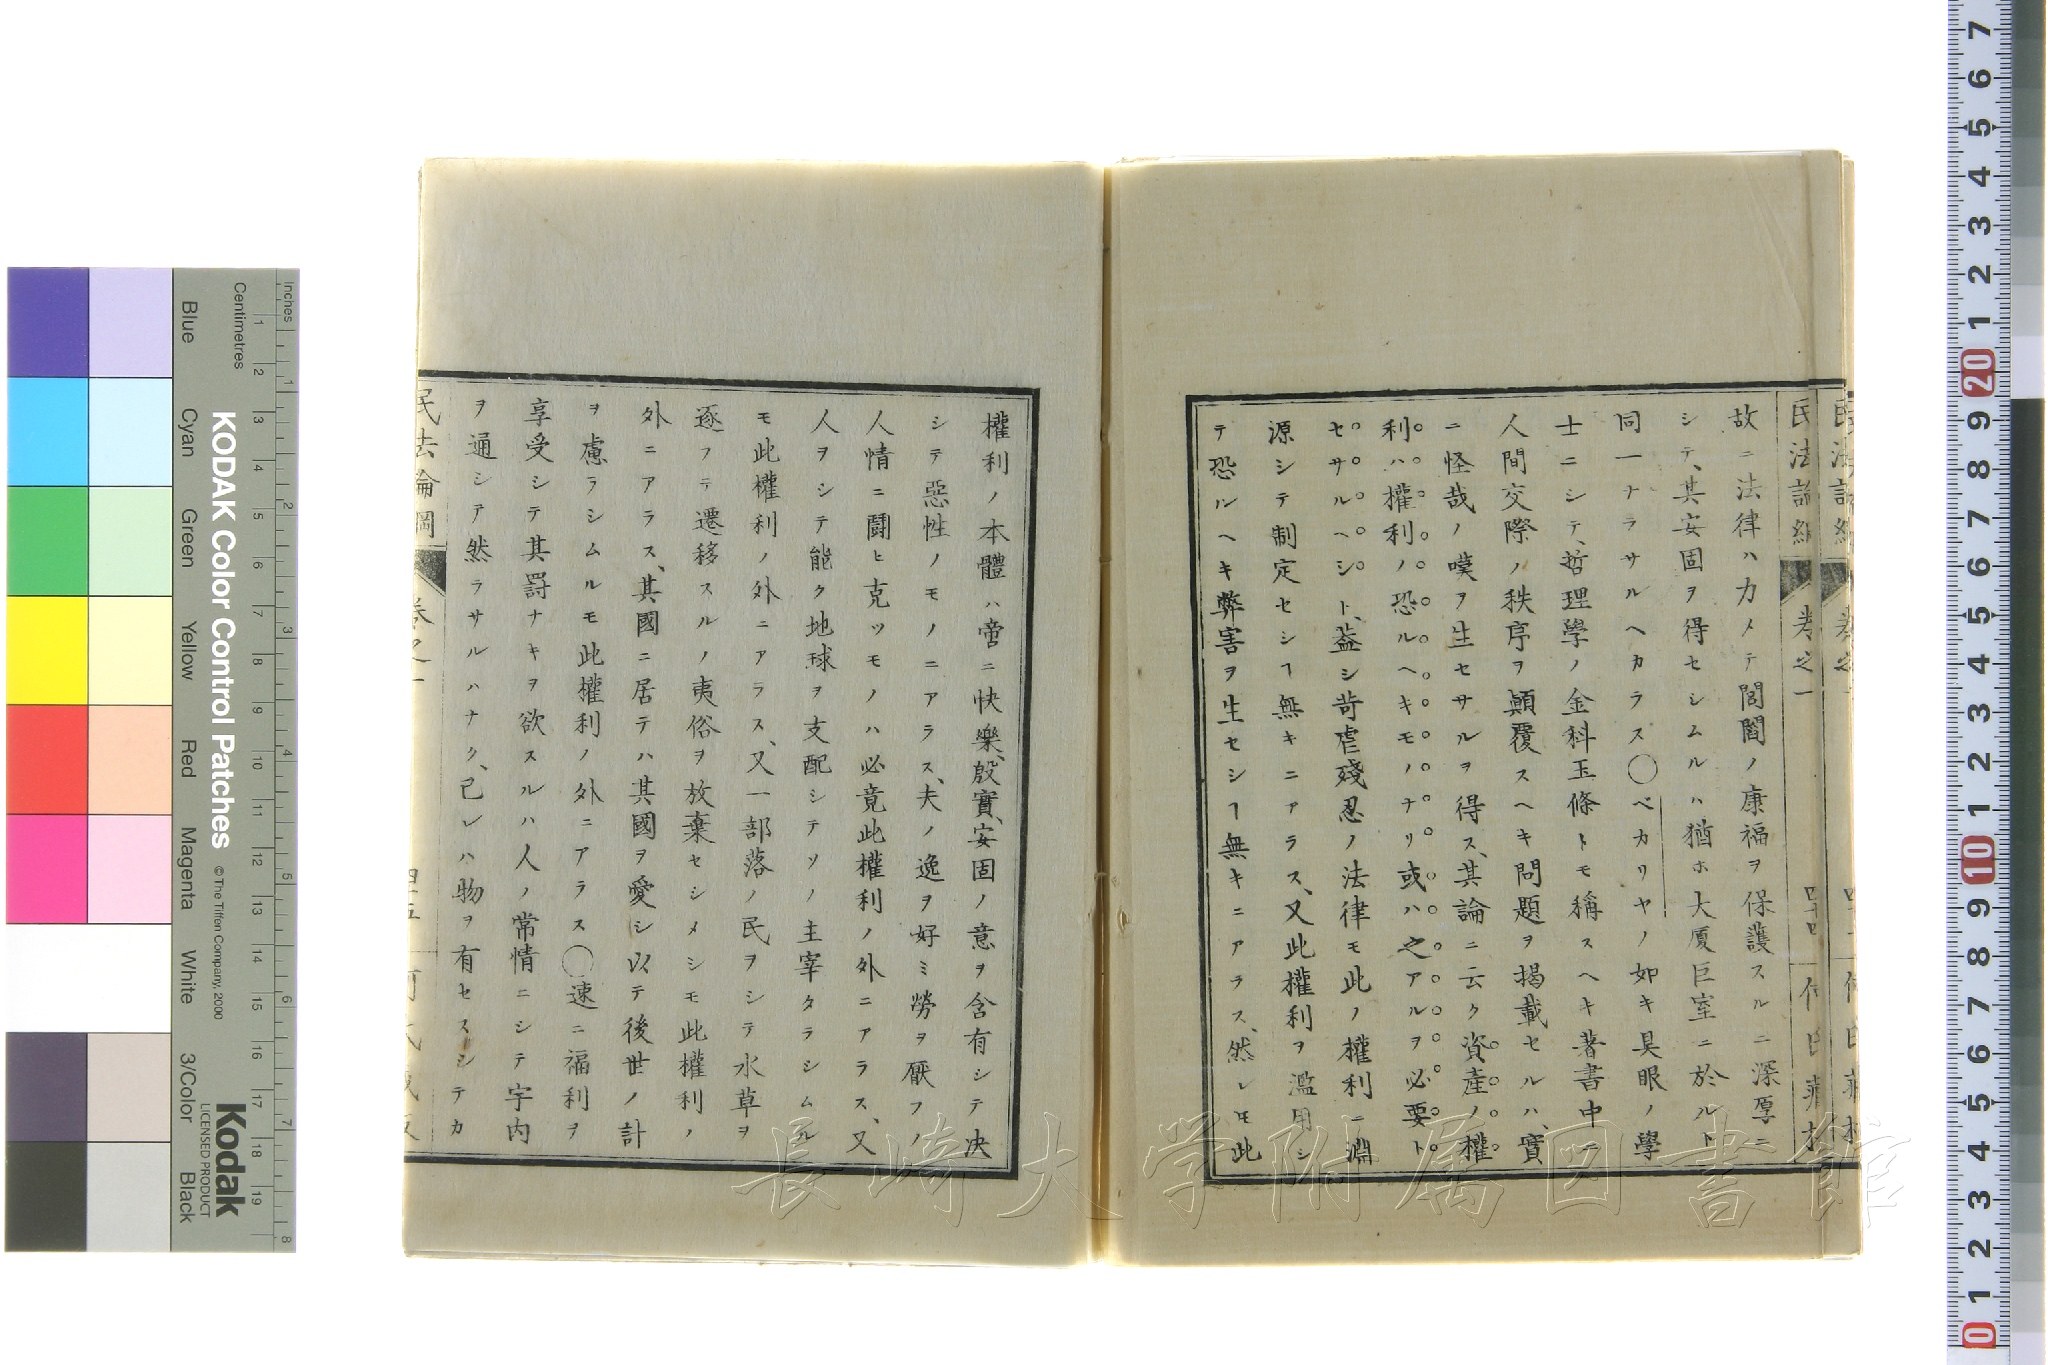 故ニ法律ハカメテ閭閻ノ康福ヲ保護スルニ深厚ニ
シテ、其安固ヲ得セシムルハ猶ホ大厦巨室ニ於ルト
同一ナラサルヘカラス◯ベカリヤノ如キ具眼ノ學
士ニシテ、哲理學ノ金科玉條トモ稱スヘキ著書中ニ
人間交際ノ秩序ヲ顚覆スヘキ問題ヲ掲載セルハ、實
ニ怪哉ノ嘆ヲ生セサルヲ得ス、其論ニ云ク資產ノ權
利ハ權利ノ恐ルヘキモノナリ或ハ之アルヲ必要ト
セサルヘシト、葢シ苛虐殘忍ノ法律モ此ノ權利ニ淵
源シテ制定セシヿ無キニアラス、又此權利ヲ濫用シ
テ恐ルヘキ弊害ヲ生セシヿ無キニアラス、然レㇳモ此
權利ノ本體ハ啻ニ快樂、殷實、安固ノ意ヲ含有シテ决
シテ惡性ノモノニアラス、夫ノ逸ヲ好ミ勞ヲ厭フノ
人情ニ鬪ヒ克ツモノハ必竟此權利ノ外ニアラス、又
人ヲシテ能ク地球ヲ支配シテソノ主宰タラシムル
モ此權利ノ外ニアラス、又一部落ノ民ヲシテ水草ヲ
逐フテ遷移スルノ夷俗ヲ放棄セシメシモ此權利ノ
外ニアラス、其國ニ居テハ其國ヲ愛シ以テ後世ノ計
ヲ慮ラシムルモ此權利ノ外ニアラス◯速ニ福利ヲ
享受シテ其罸ナキヲ欲スルハ人ノ常情ニシテ宇内
ヲ通シテ然ラサルハナク、己レハ物ヲ有セスシテカ
民法論綱
卷之一
KODAK Color Control Patches
© The Tiffen Company, 2000
Kodak
LICENSED PRODUCT
Inches
Centimetres
Blue
Cyan
Green
Yellow
Red
Magenta
White
3/Color
Black
長崎大学附属図書館